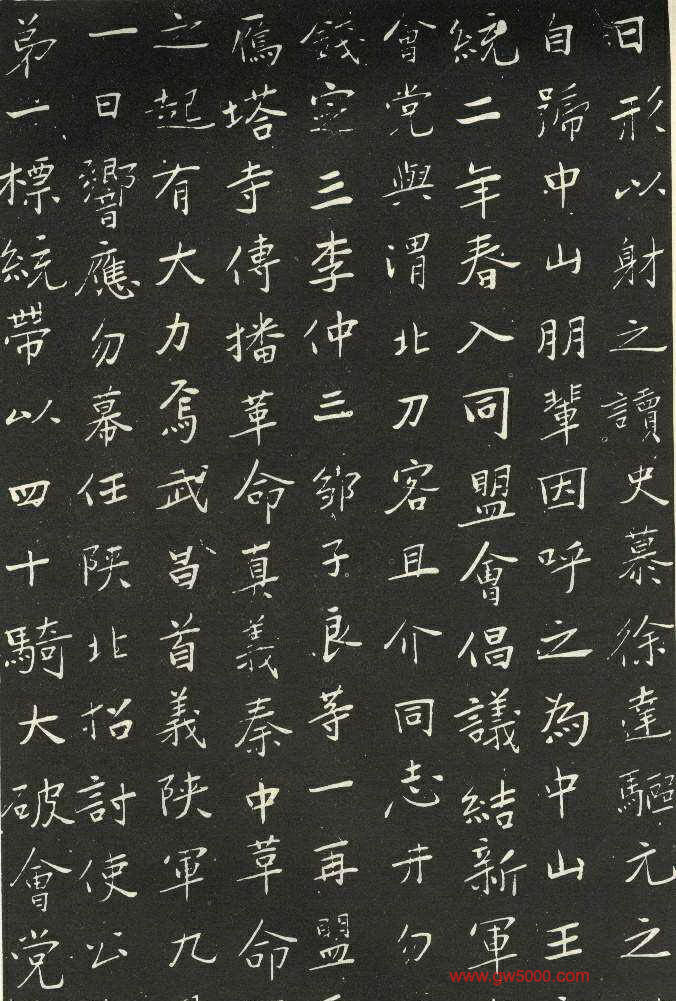 日形以射之讀史慕徐達驅元之
自號中山朋輩因呼之為中山王
統二年春入同盟會倡議結新軍
會党與渭北刀客且介同志井勿
錢定三李仲三鄒子良等一再盟
鴈塔寺傳播革命真義秦中革命
之起有大力焉武昌首義陕軍九
一日響應勿幕任陕北招討使公
弟一標統帶以四十騎大破會党
www.gw5000.com